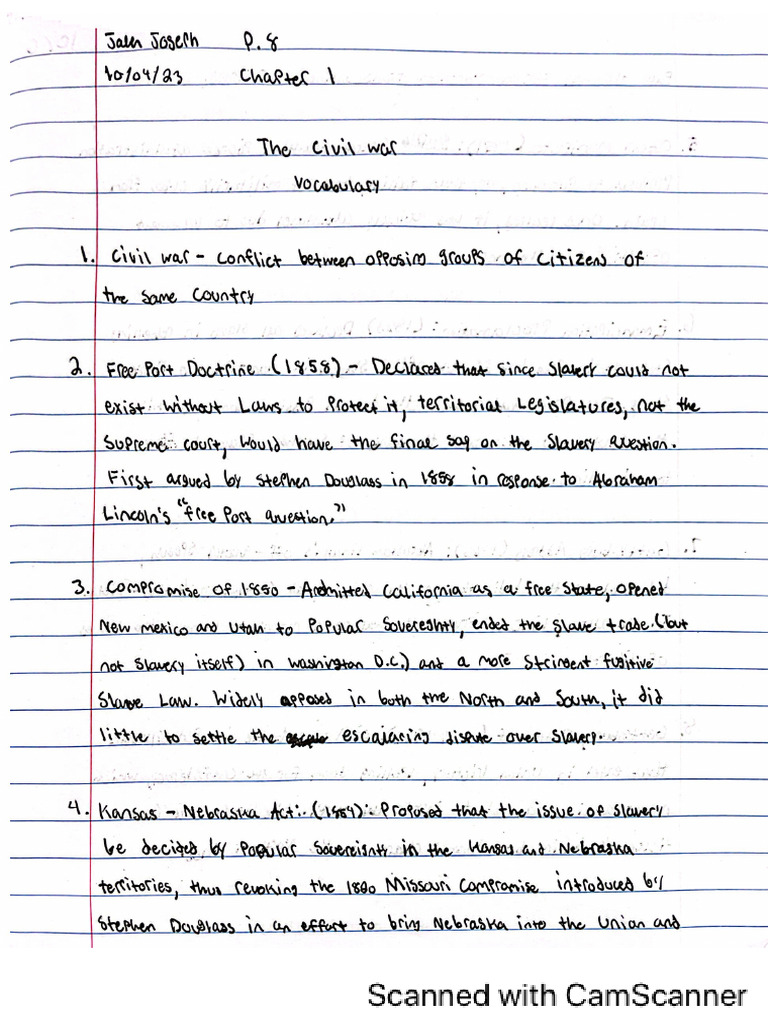 Jalen Joseph P. 8
10/04/23 Chapter 1
The Civil war
Vocabulary
1. Civil war - Conflict between opposing groups of Citizens of
the Same Country
2. Free Port Doctrine (1858) - Declared that since Slavery could not
exist without Laws to Protect it, territorial Legislatures, not the
Supreme court, would have the final say on the Slavery question.
First argued by Stephen Douglass in 1858 in response to Abraham
Lincoln's "free Port question."
3. Compromise of 1850 - Admitted California as a free State, opened
New mexico and Utah to Popular Sovereignty, ended the slave trade (but
not Slavery itself) in Washington D.C.) and a more Stringent fugitive
Slave Law. Widely opposed in both the North and South, it did
little to settle the escalating dispute over Slavery.
4. Kansas - Nebraska Act: (1854): Proposed that the issue of slavery
be decided by Popular Sovereignty in the Kansas and Nebraska
territories, thus revoking the 1820 Missouri Compromise introduced by
Stephen Douglass in an effort to bring Nebraska into the Union and
Scanned with CamScanner